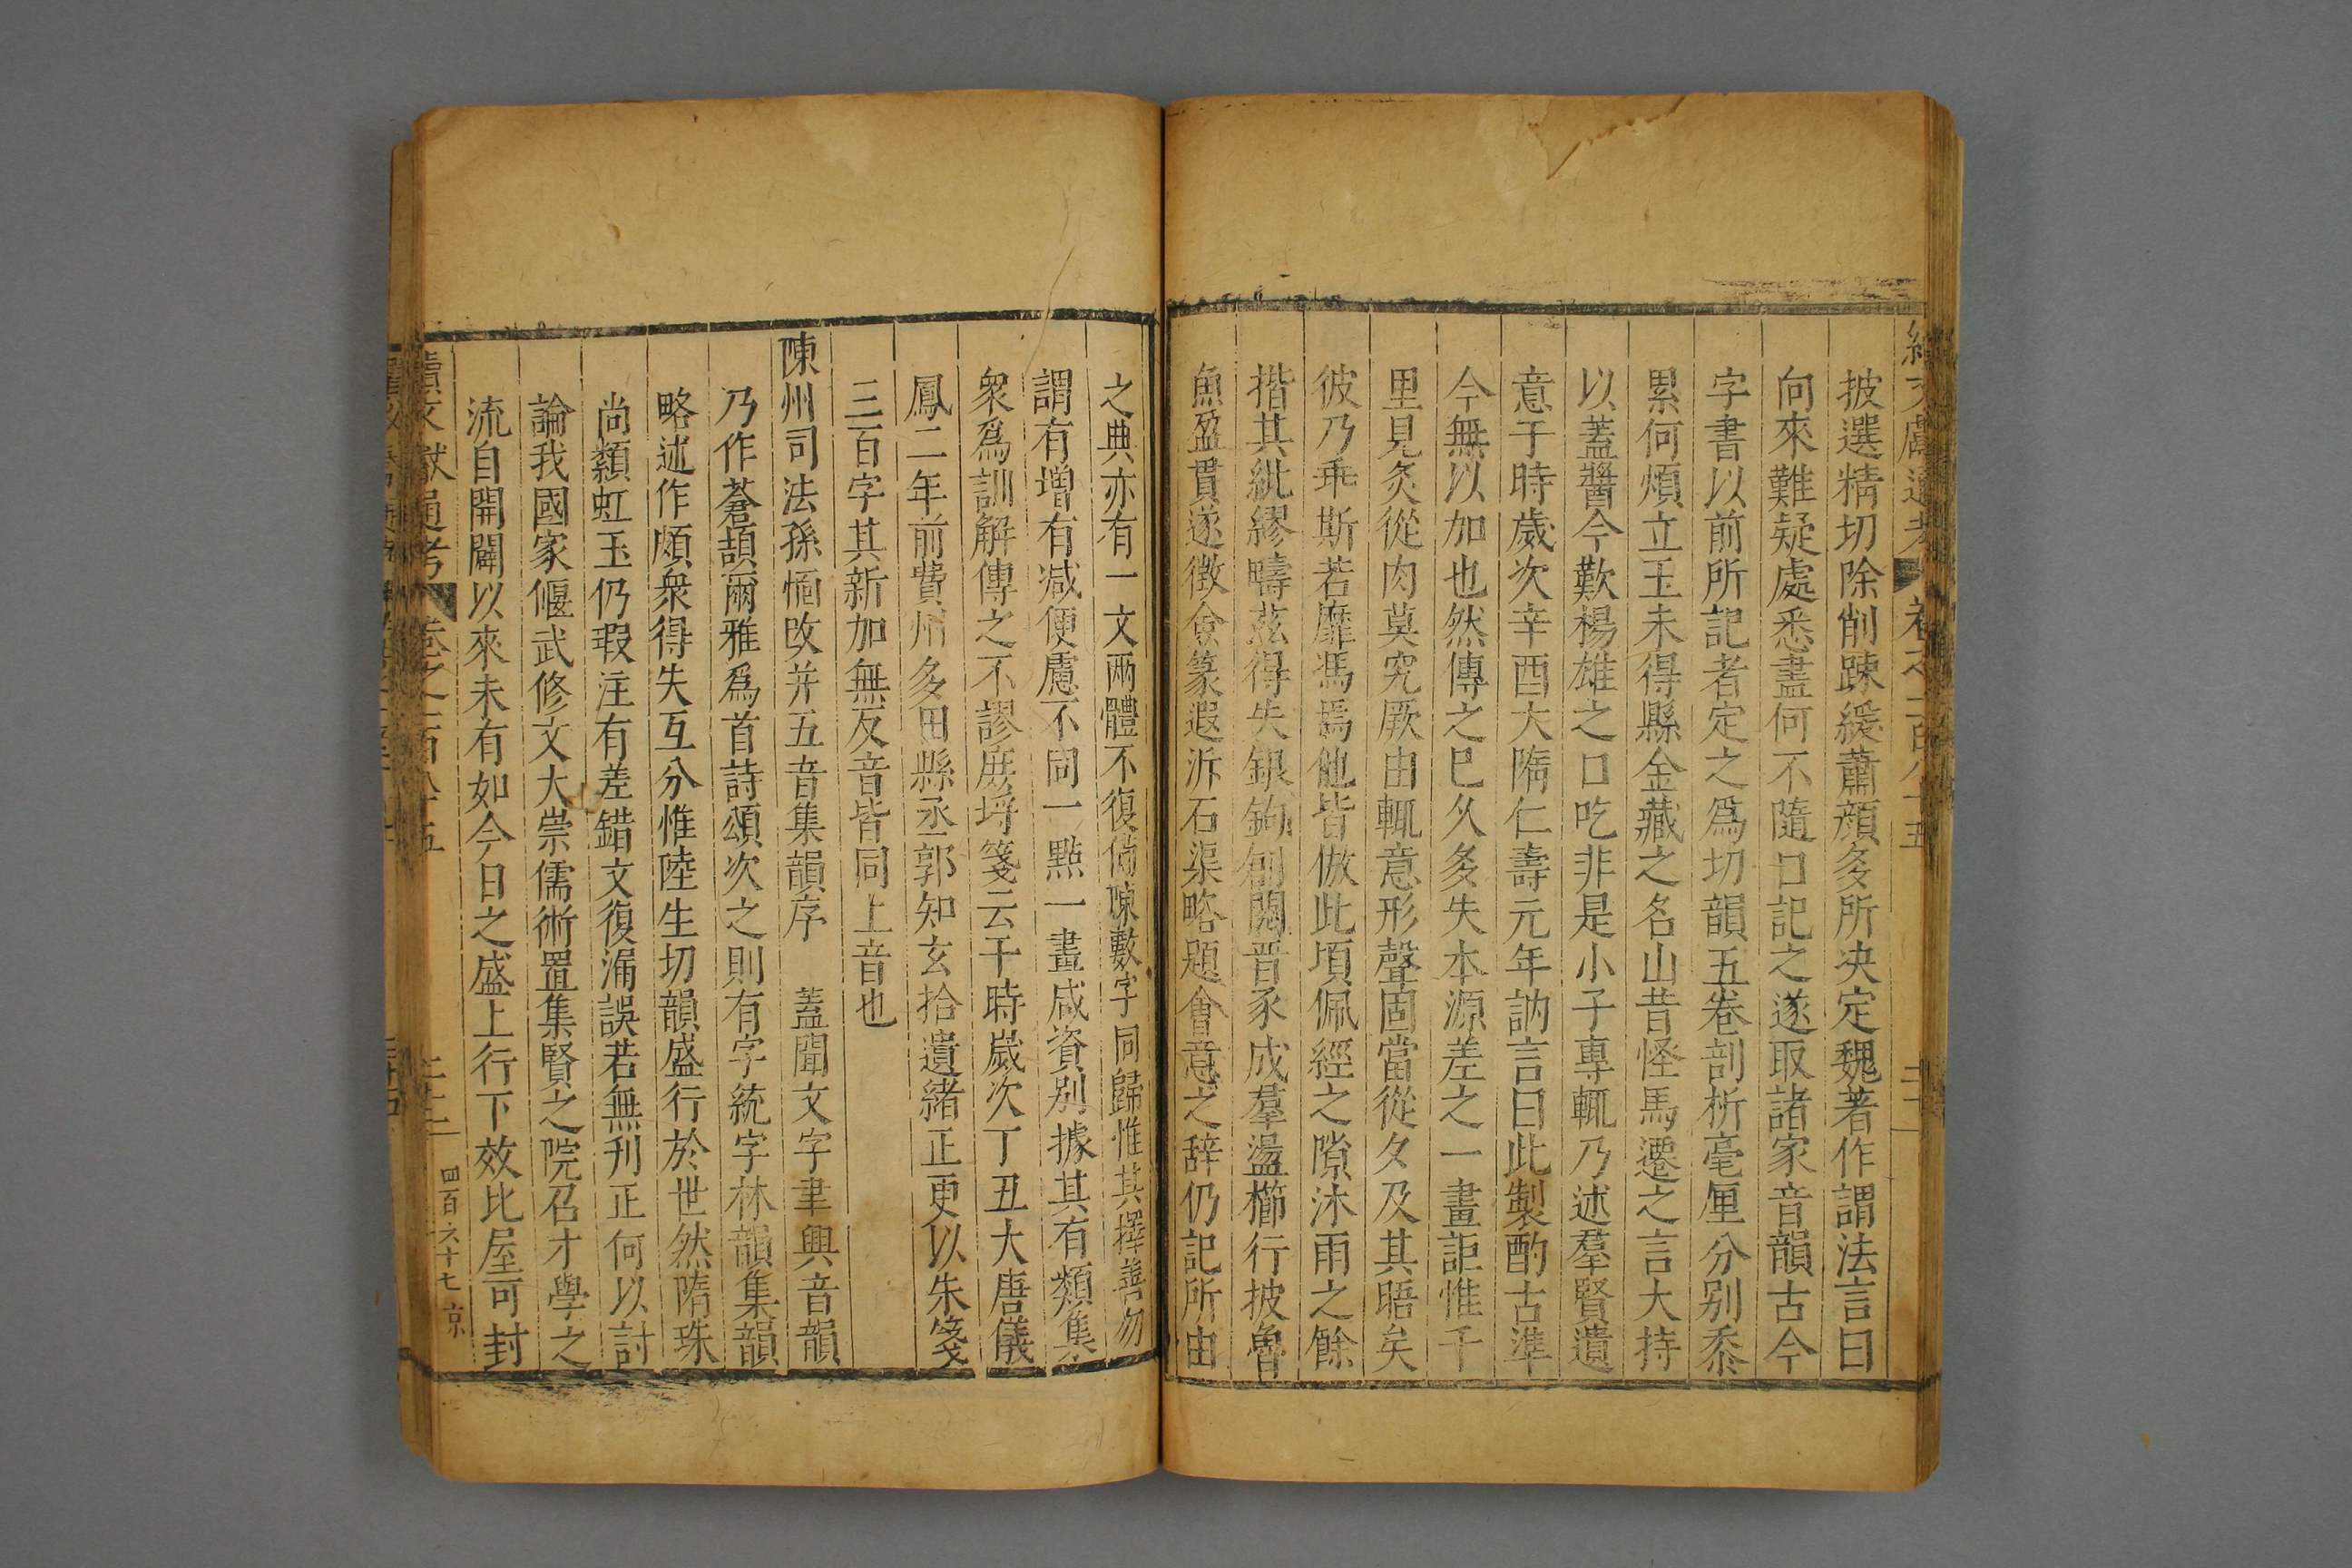 披選精切除削踈緩蕭顔多所决定魏著作謂法言曰
向來難疑處悉盡何不隨口記之遂取諸家音韻古今
字書以前所記者定之爲切韻五卷剖析毫厘分别黍
累何煩立玉未得縣金藏之名山昔怪馬遷之言大持
以蓋醬今歎楊雄之口吃非是小子專輒乃述羣賢遺
意于時歲次辛酉大隋仁壽元年訥言曰此製酌古準
今無以加也然傳之已久多失本源差之一畫詎惟千
里見炙從肉莫究厥由輒意形聲固當從夕及其晤矣
彼乃乖斯若靡馮焉他皆倣此頃佩經之隙沐雨之餘
揩其紕繆疇茲得失銀鉤創閱晋豕成羣盪櫛行披魯
魚盈貫遂徵金篆遐泝石渠略題會意之辞仍記所由
之典亦有一文兩體不復備陳數字同歸惟其擇善勿
謂有增有减便慮不同一點一畫咸資别據其有類集
衆爲訓解傳之不謬庶埒箋云于時歲次丁丑大唐儀
鳳二年前費州多田縣丞郭知玄拾遺緒正更以朱箋
三百字其新加無反音皆同上音也
陳州司法孫愐改并五音集韻序 蓋聞文字聿興音韻
乃作蒼頡爾雅爲首詩頌次之則有字統字林韻集韻
略述作頗衆得失互分惟陸生切韻盛行於世然隋珠
尚纇虹玉仍瑕注有差錯文復漏誤若無刋正何以討
論我國家偃武修文大崇儒術置集賢之院召才學之
流自開闢以來未有如今日之盛上行下效比屋可封
續文獻通考 卷之一百八十五
四百六十七 京